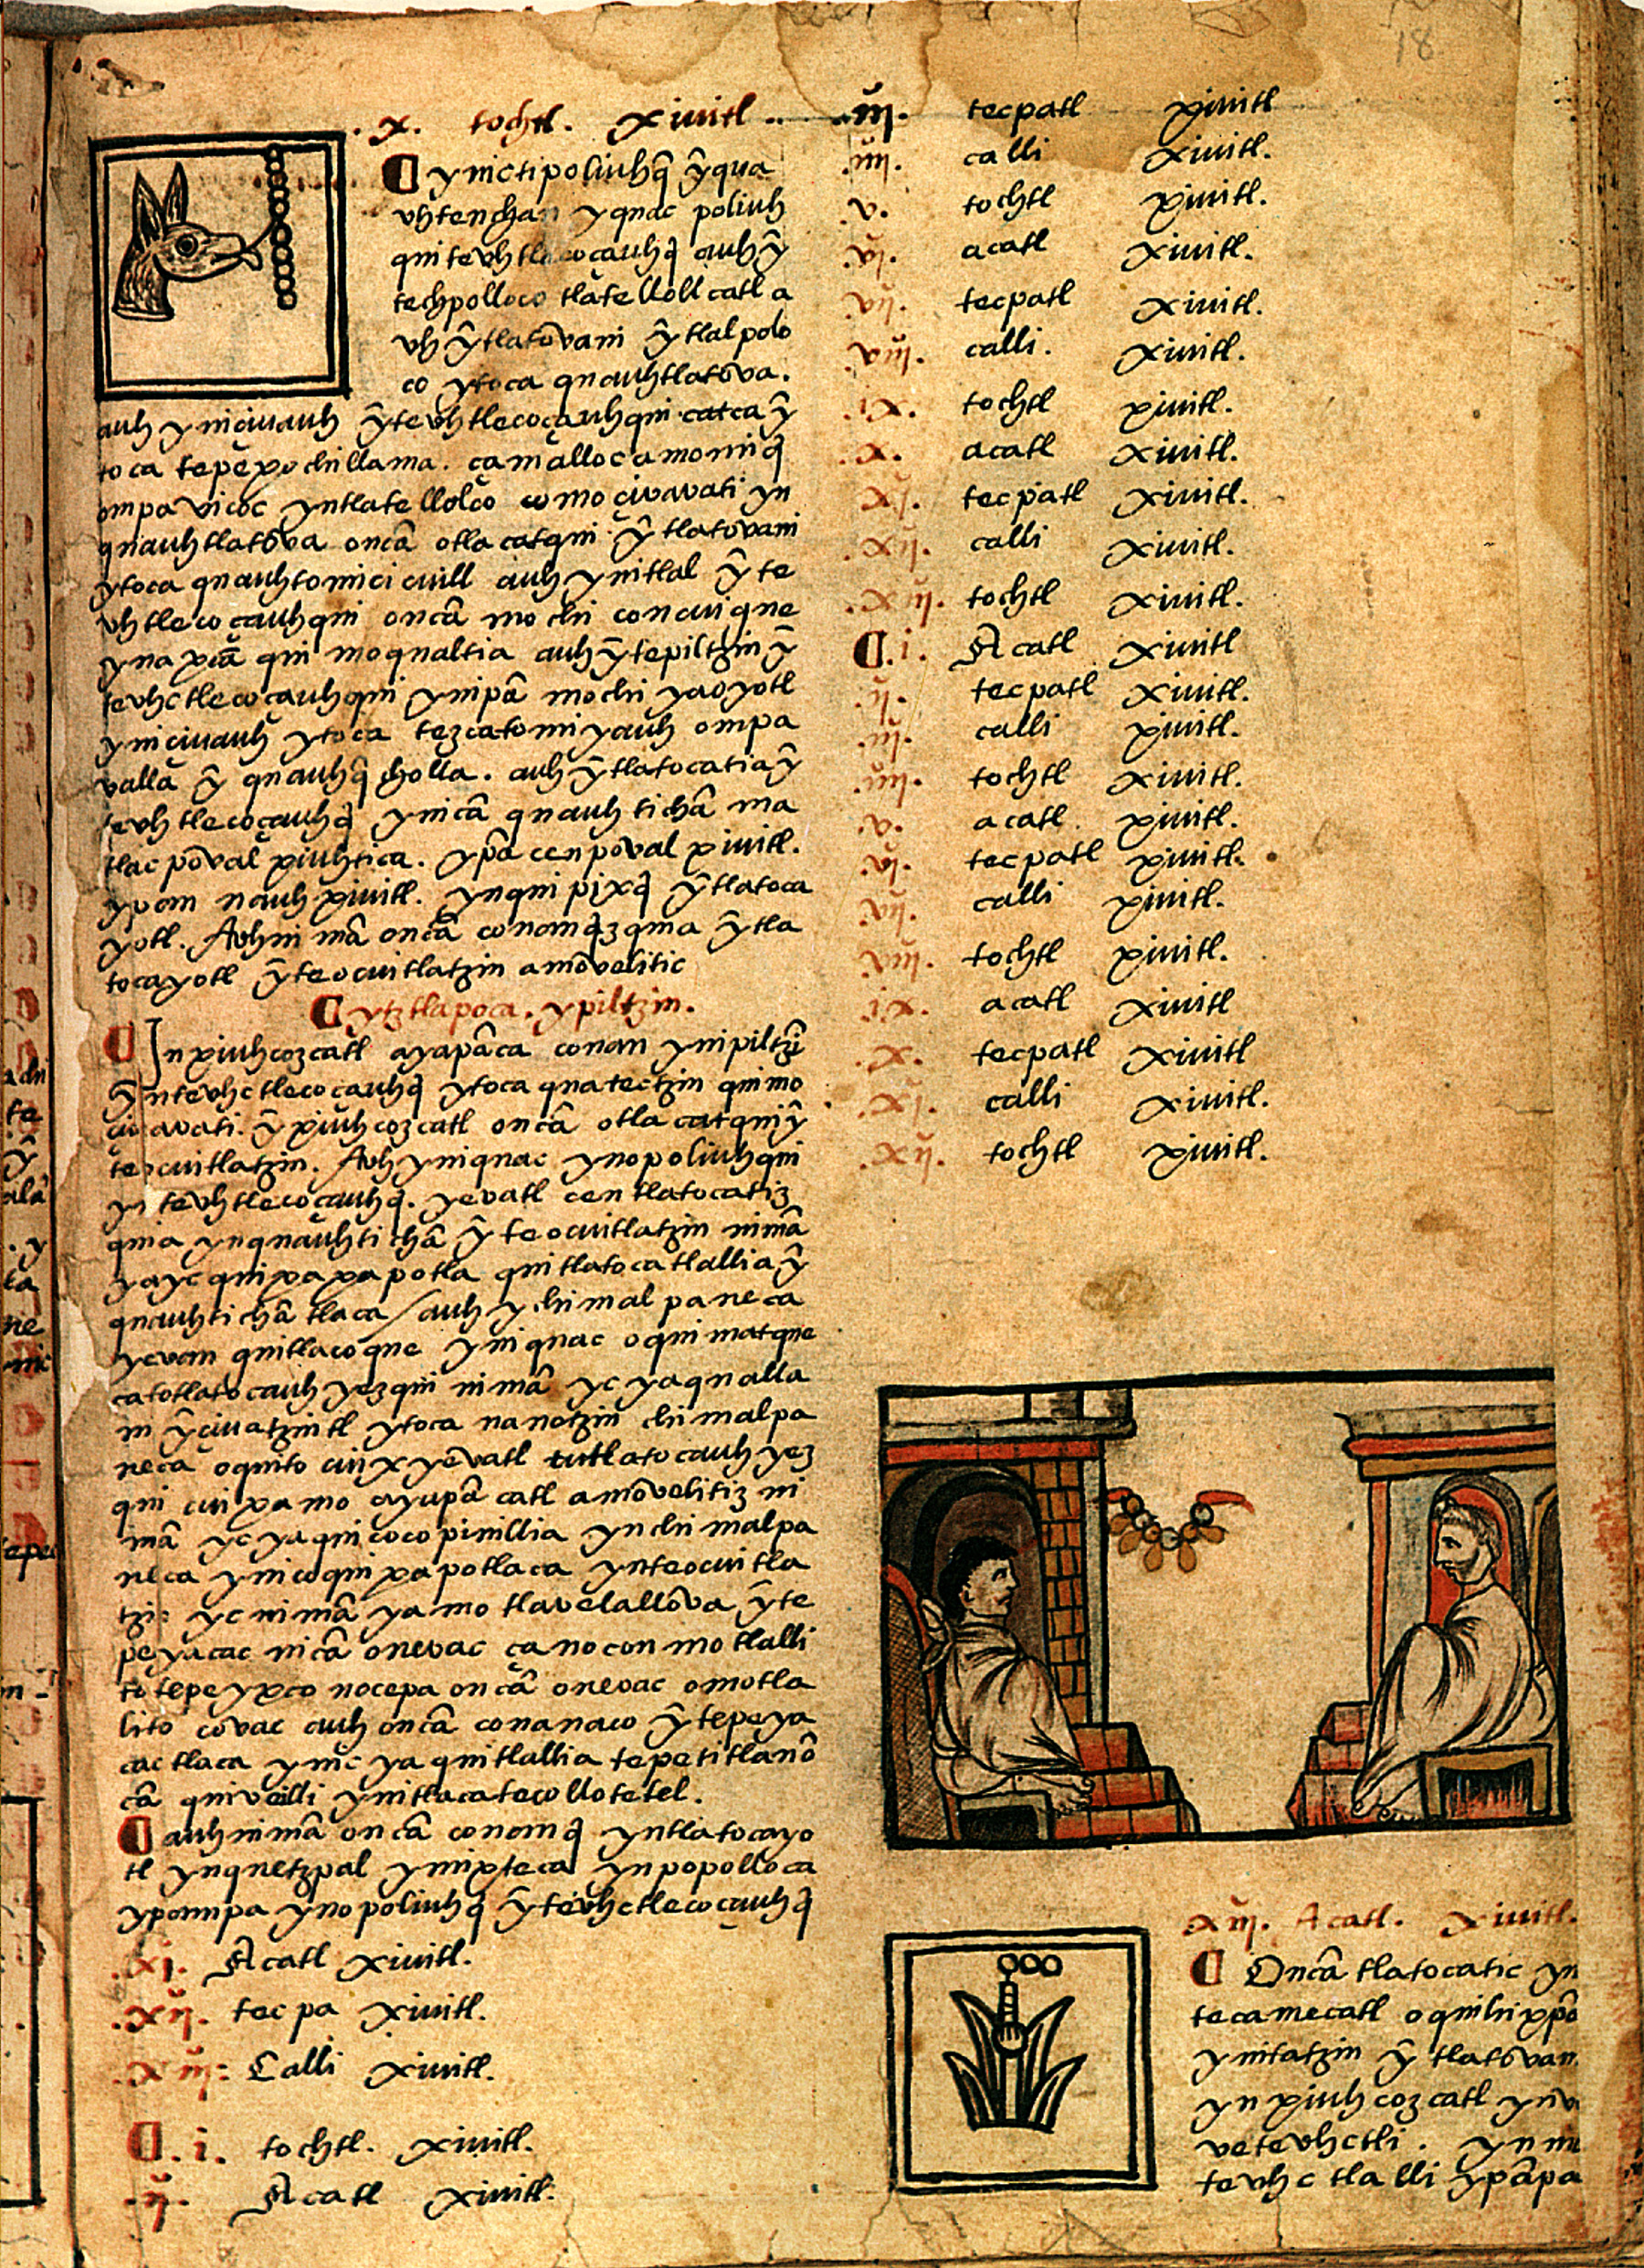 18
.x. tochtl. xiuitl..
ynictipoliuhq̄ ȳqua
vhtenchan yquac poliuh
quitevhtlecocauhq̄ auhȳ
techpolloco tlatellollcatl a
vh ȳtlatōvani ȳtlalpolo
co ytoca quauhtlatōva.
auh yniciuauh ȳtevhtlecoçauhqui catca ȳ
toca tepexochillama. çamalloc amomiq̄
ompa vicoc yntlatellolco comoçivavati yn
quauhtlatōva oncā otlacatqui ȳtlatōvani
ytoca quauhtomicicuill auh ynitlal ȳte
vhtlecocauhqui oncā mochi concuique
ynaxcā quimoqualtia auhȳtepiltzin ȳ
tevhctlecocauhqui ynipā mochi yaoyotl
yniciuauh ytoca tezcatomiyauh ompa
valla ȳ quauhq̄cholla. auhȳtlatocatia ȳ
tevhtlecoçauhq̄ ynicā quauhtichā ma
tlacpōval xiuhtica. ypā cenpōval xiuitl.
yvan nauhxiuitl. ynquipixq̄ ȳtlatoca
yotl. Auhni mā oncā conanq̄zquia ȳtla
tocayotl ȳteocuitlatzin amōvelitic
ytztlapoca. ypiltzin.
Inxiuhcozcatl ayapāca conan ynipiltzī
ȳntevhctlecoçauhq̄ ytoca quatectzin quimo
ciuavati. ȳ xiuhcozcatl oncā otlacatqui ȳ
teocuitlatzin. Auh yniquac ynopoliuhqui
yn tevhtlecoçauhq̄. yevatl cen tlatocatiz
quia ynquauhtichā ȳ teocuitlatzin nimā
yayc quixaxapotla quitlatocatlallia ȳ
quauhtichā tlaca / auh ychimalpaneca
yevan quitlacoque yniquac oquimatque
catotlatocauh yezqui nimā yc yaqualla
ni ȳciuatzintl ytoca nanotzin chimalpa
neca oquito cuix yēvatl tutlatocauh yez
qui cuixamo ayapācatl amōvelitiz ni
mā yc yaquicocopinillia ynchimalpa
neca ynicoquixapotlaca ynteocuitla
tzi: yc nimā yamotlavelallōva ȳte
peyacac nicā onevac çanoconmotlalli
totepeyxco nocepa oncā onevac omotla
lito covac auh oncā conanaco ȳtepeya
cac tlaca ynic yaquitlallia tepetitlanō
cā quiveilli ynitlacatecollotetel.
auhnimā oncā conanq̄ yntlatocayo
tl ynquetzpal ymixteca ynpopolloca
ypampa ynopoliuhq̄ ȳtevhctlecocauhq̄
.xi. Acatl xiuitl.
.xii. tecpa xiuitl.
.xiii: Calli xiuitl.
.i. tochtl. xiuitl.
.ii. Acatl xiuitl.
.iii. tecpatl xiuitl
.iiii. calli xiuitl.
.v. tochtl xiuitl.
.vi. acatl xiuitl.
.vii. tecpatl xiuitl.
.viii. calli. xiuitl.
.ix. tochtl xiuitl.
.x. acatl xiuitl.
.xi. tecpatl xiuitl.
.xii. calli xiuitl.
.xiii. tochtl xiuitl.
.i. Acatl xiuitl
.ii. tecpatl xiuitl.
.iii. calli xiuitl.
.iiii. tochtl xiuitl.
.v. acatl xiuitl.
.vi. tecpatl xiuitl.
.vii. calli xiuitl.
.viii. tochtl xiuitl.
.ix. acatl xiuitl
.x. tecpatl xiuitl
.xi. calli xiuitl.
.xii. tochtl xiuitl.
xiii. Acatl. xiuitl.
Oncā tlatocatic yn
tecamecatl oquihixpō
ynitatzin ȳ tlatōvan
yn xiuhcozcatl ynv
vetevhctli. ynni
tevhctlalli ypāpa